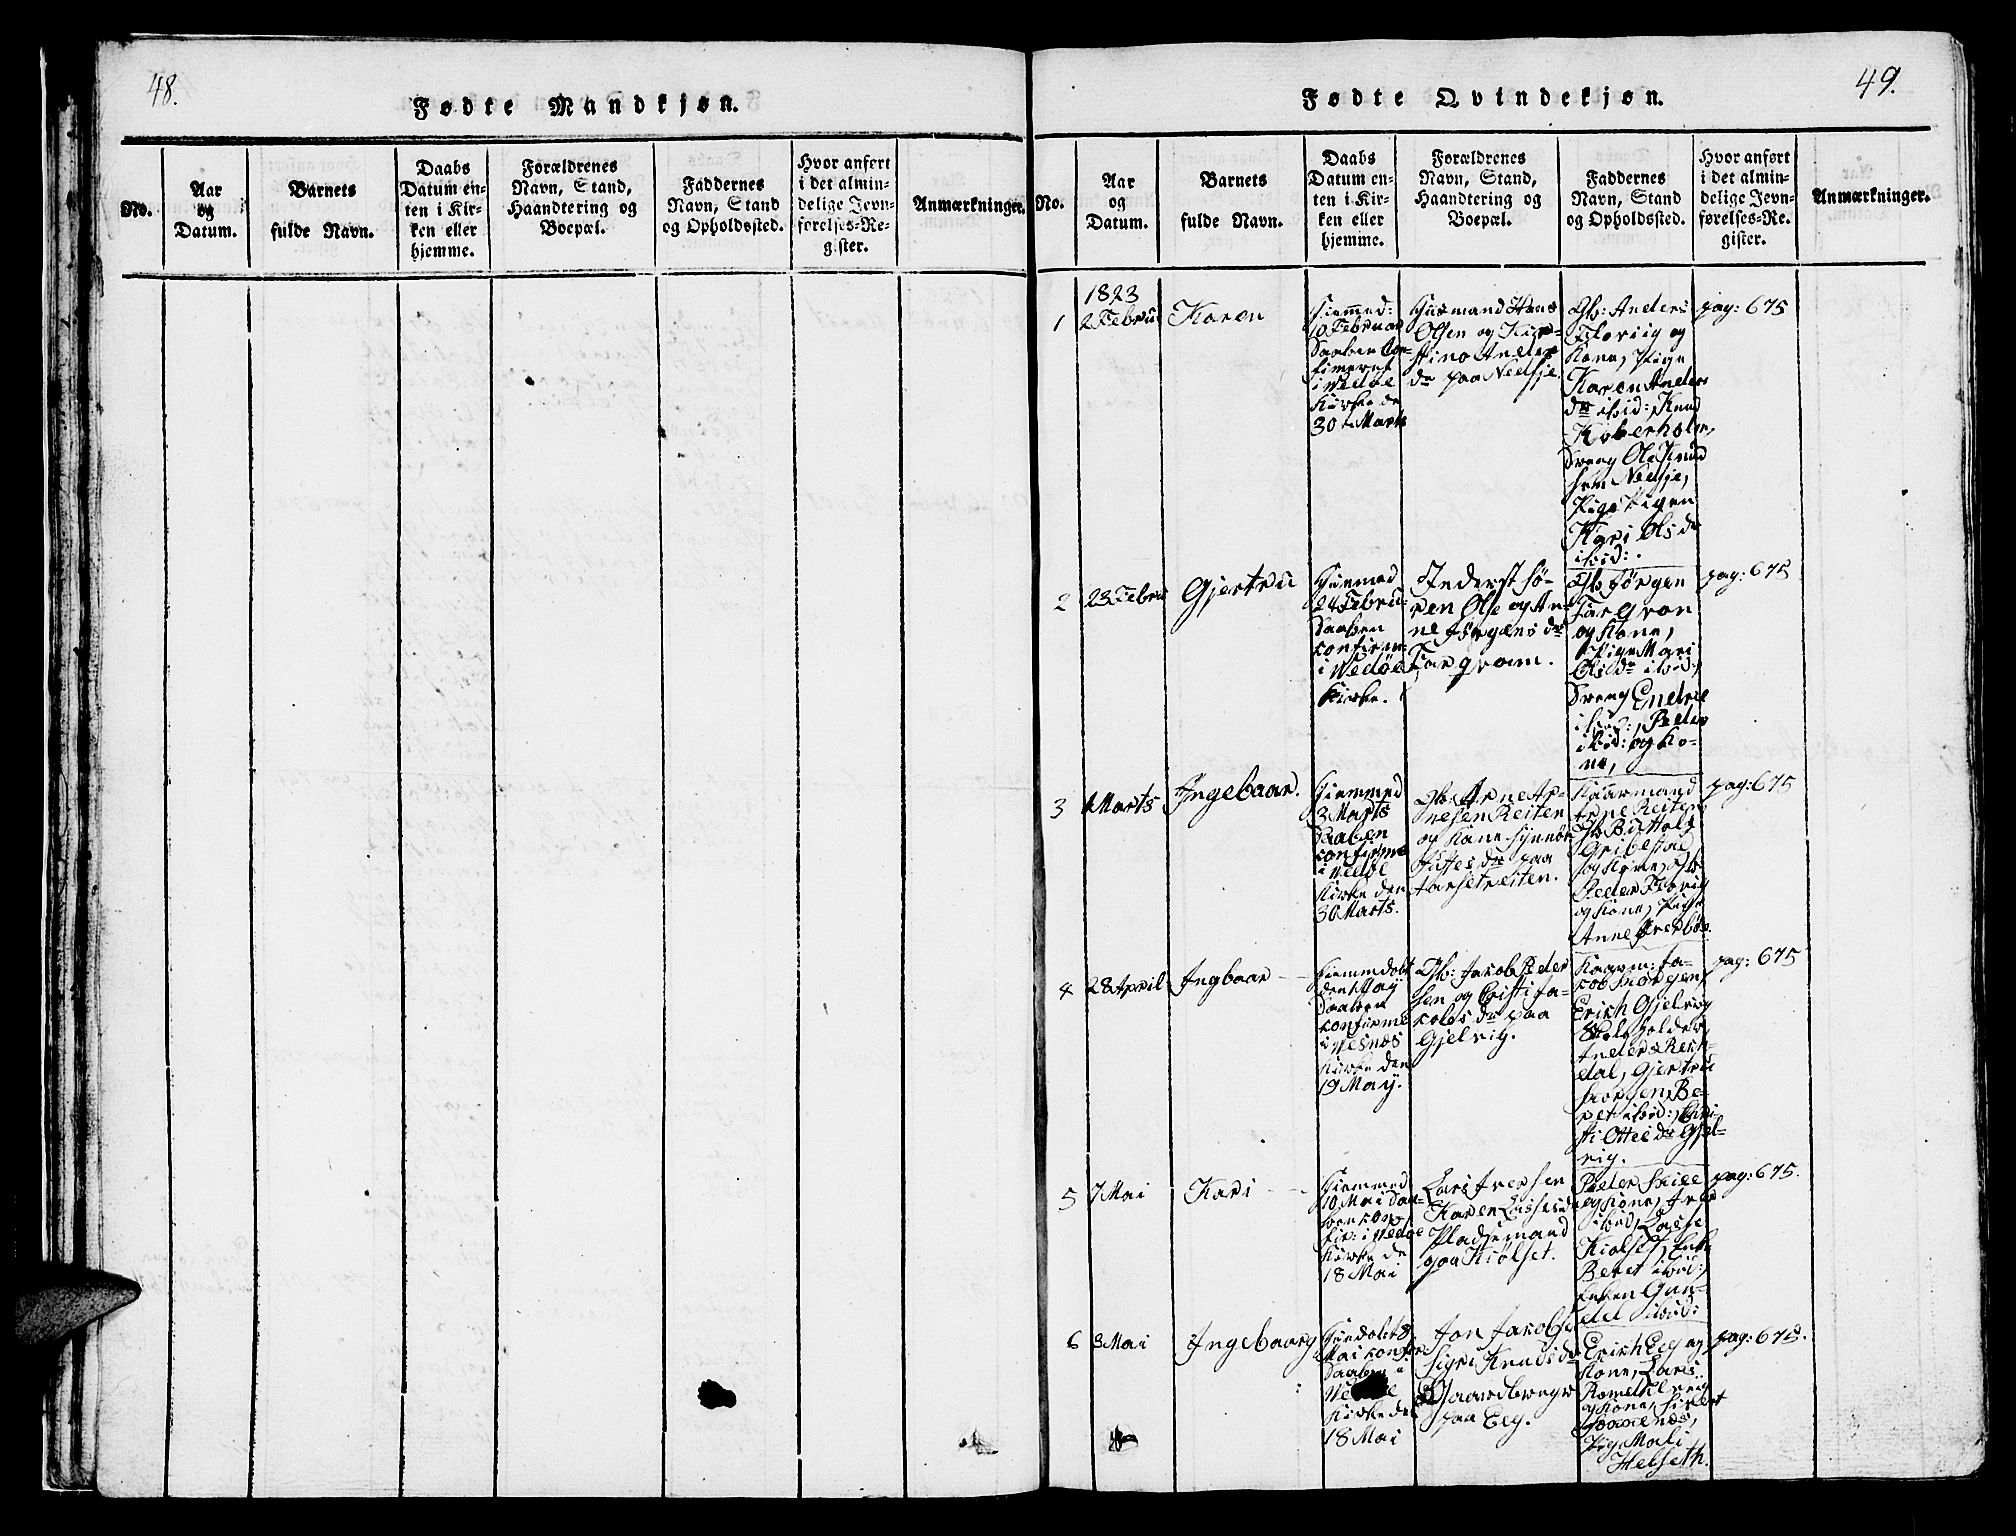 48.
Fødte Mandkjøn.
No.
Aar
og
Datum.
Barnets
fulde Navn.
Daabs
Datum en-
ten i Kir-
ken eller
hjemme.
Forældrenes
Navn, Stand,
Haandtering og
Boepæl.
Faddernes
Navn, Stand
og Opholdssted.
Hvor anført
i det almin-
delige Jevn-
førelses-Re-
gister.
Anmærkninger.
49.
Fødte Qvindekjøn.
No.
Aar
og
Datum.
Barnets
fulde Navn.
Daabs
Datum en-
ten i Kir-
ken eller
hjemme.
Forældrenes
Navn, Stand,
Haandtering og
Boepæl.
Faddernes
Navn, Stand
og Opholdssted.
Hvor anført
i det almin-
delige Jevn-
førelses-Re-
gister.
Anmærkninger.
1823
1
2 Febru
Karen
Hiemmed:
10 Februar
Daaben Con-
fimeret
i Wedøe
Kirke de
30te Marts
Huusmand Hans
Olsen og
Anders
dr paa Nedsje.
Gb: Anders
og
Kone, Pige
Karen Anders
dr ibid:, Knud
Koberholm,
Dreng Ole Knud
sen Nedsje,
Pige Pigen
Kari Ols dr
ibid:.
pag: 675
2
23 Febru
Gjertru
Hiemmed
24 Febru:
Daaben
confirm
i Wedøe
Kirke.
Inderst Sø-
ren Olse og An-
ne Jørgens dr
Fargram.
Gb Jørgen
Fargron
og Kone,
Pige Mari
Ols dr ibid:,
Dreng Endree
ibid:, Peder
ibid: og Ko-
ne,
pag: 675
3
1 Marts
Ingebaar.
Hiemmed
3 Marts
Daaben
confirme
i Wedøe
Kirke den
30 Marts.
Gb: Arne Ar-
nesen Reiten
og Kone Synnøv
dr paa
Reiten.
Kaarmand
Arne Reiten
Gb
Gribestad
og Kone, Gb
Peder
og Kone, Pige
Anne
pag: 675
4
28 April
Ingbaar
Hiemmedøbt
den 1 May
Daaben
confirme
i Wesnes
Kirke den
19 May.
Gb: Jakob Peder
sen og Cristi Ja-
cobs dr paa
Gjelvig.
Kaarm: Ja-
cob
Erich Gjelvig
Anders
dal, Gjertru
Be-
ret ibid:, Cri
sti Ottes dr Gjel-
vig.
pag: 675
5
7 Mai
Kari
Hiemmed
10 Mai Daa-
ben con-
fir: i Wedøe
Kirke de
18 Mai
Lars Iversen
Karen Lasses dr
Pladsemand
paa Kiølset.
Peder
og Kone, Iver
ibid, Lasse
Kiølset, Enke
Beret ibid:,
Enken Gun-
del ibid:
pag: 675.
6
3 Mai
Ingebaarg
Hiemdøbt 8
Mai confir
Daaben i
Kirke de
18 Mai
Jon Jacobse
Sigri Knuds dr
Gaardbruger
paa Eeg.
Erich Eeg og
Kone, Lars
og Kone, Sivert
Pige Mali
Helseth.
pag: 675.